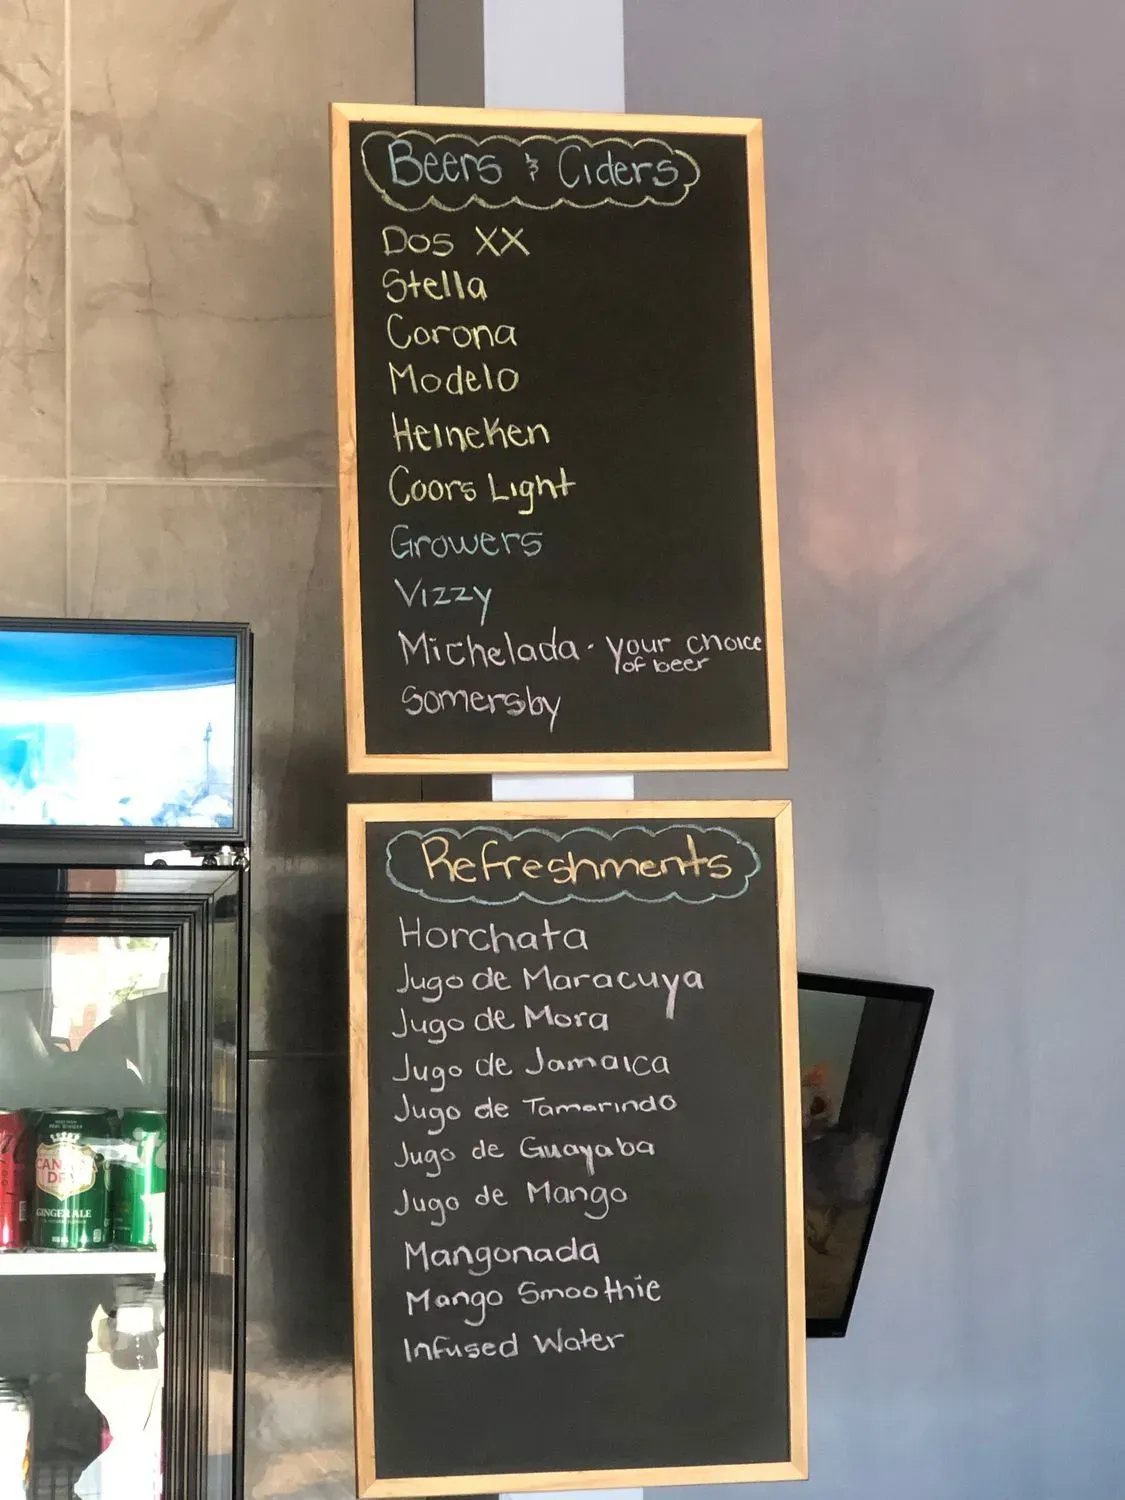 Beers & Ciders
Dos XX
Stella
Corona
Modelo
Heineken
Coors Light
Growers
Vizzy
Michelada - your choice
of beer
Somersby
Refreshments
Horchata
Jugo de Maracuya
Jugo de Mora
Jugo de Jamaica
Jugo de Tamarindo
Jugo de Guayaba
Jugo de Mango
Mangonada
Mango Smoothie
Infused Water
CANADA
DRY
GINGER ALE